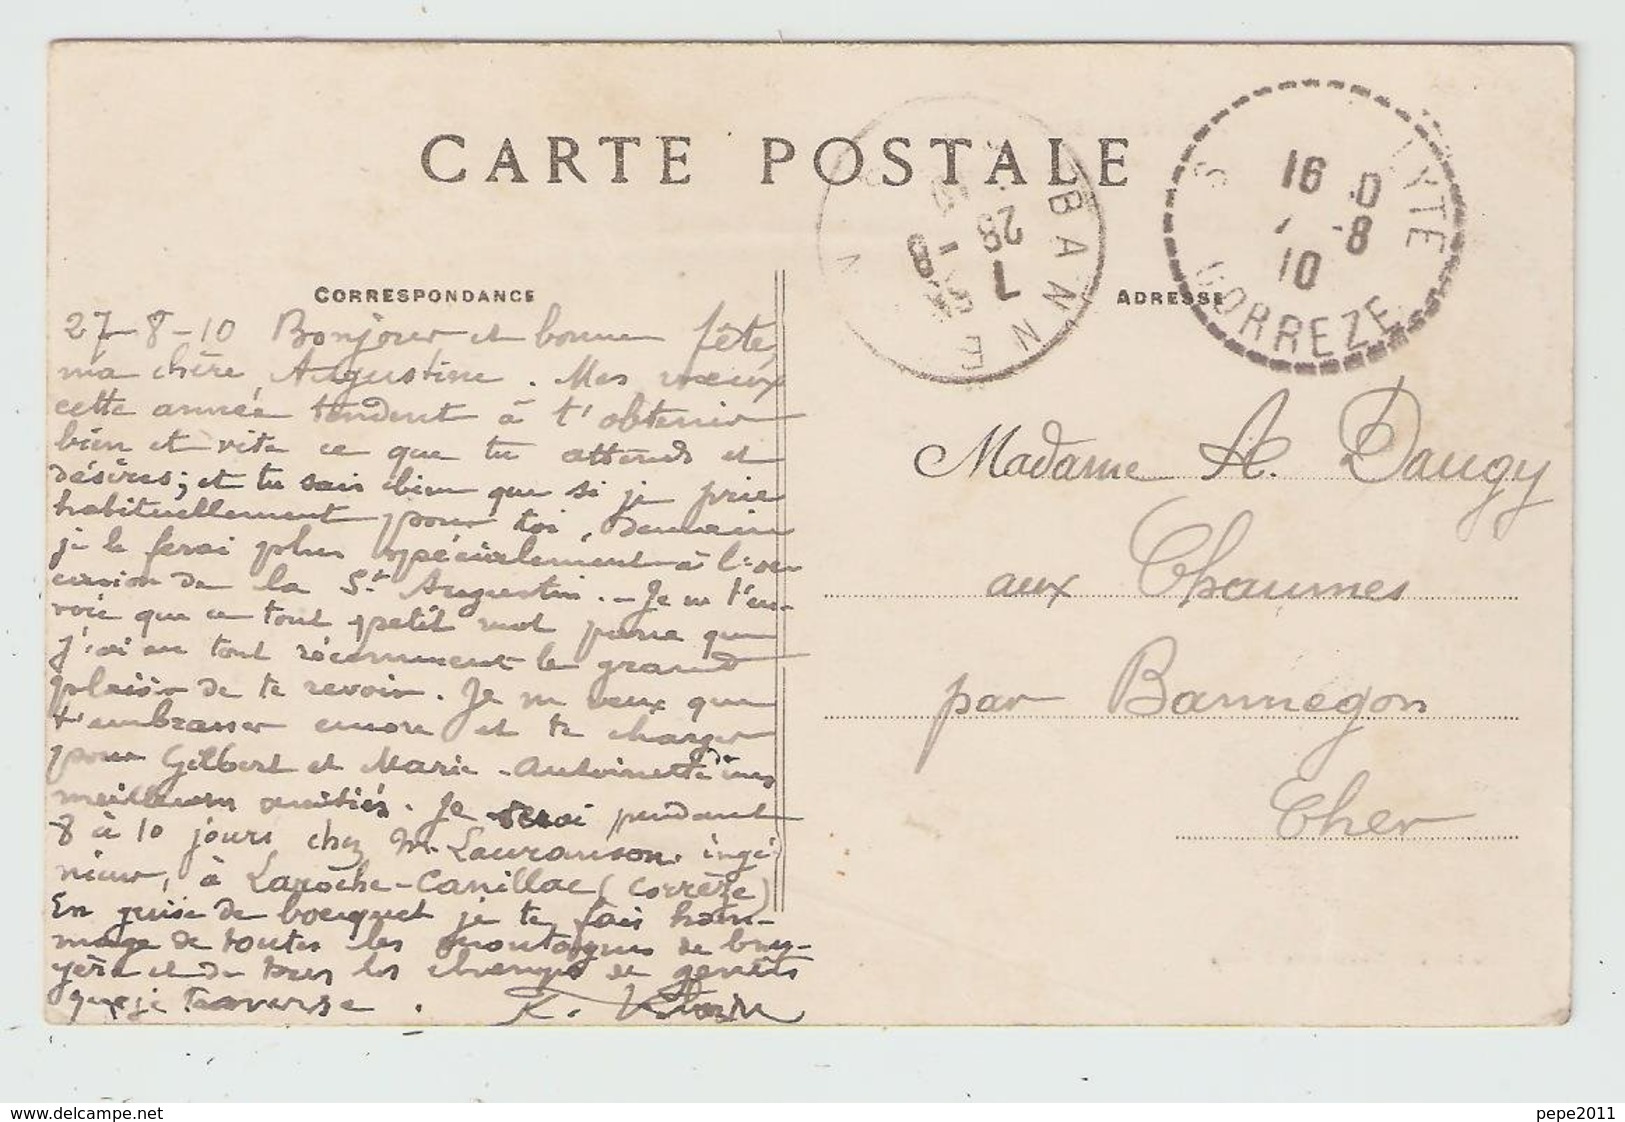 CARTE POSTALE
CORRESPONDANCE
ADRESSE
BANNE
7
28-8
YTE
16 0
-8
10
CORREZE
27-8-10 Bonjour et bonne fête,
ma chère Augustine. Mes vœux
cette année tendent à t'obtenir
bien et vite ce que tu attends et
désires; et tu sais bien que si je prie
habituellement pour toi, demain
je le ferai plus spécialement à l'oc-
casion de la St Augustin. - Je ne t'en-
voie que ce tout petit mot parce que
j'ai eu tout récemment le grand
plaisir de te revoir. Je ne veux que
t'embrasser encore et te charger
pour Gilbert et Marie-Antoinette de mes
meilleures amitiés. Je serai pendant
8 à 10 jours chez Mr. Lauranson, ingé-
nieur, à Laroche-Canillac (Corrèze)
En guise de bouquet je te fais hom-
mage de toutes les montagnes de bru-
yère et de tous les champs de genêts
que je traverse.
Madame A. Daugy
aux Chaumes
par Bannegon
Cher
www.delcampe.net
pepe2011